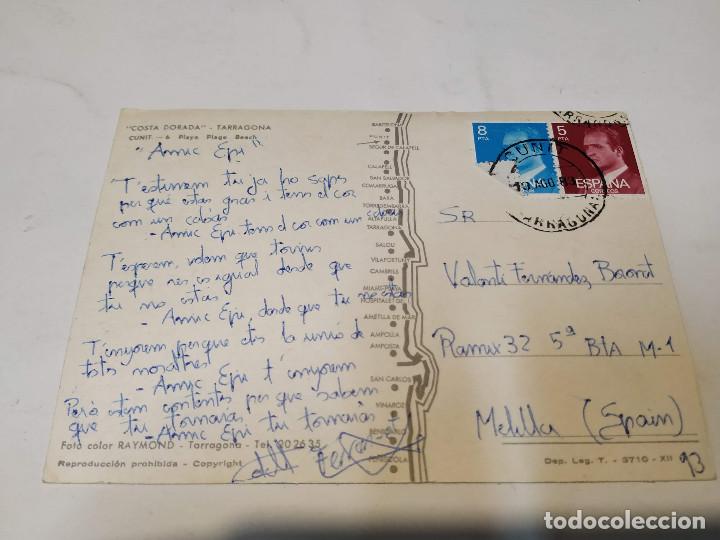 "COSTA DORADA" - TARRAGONA
CUNIT. - 6 Playa Plage Beach
"Amic Epi"
T'estimem tu ja ho saps
perquè estas gras i tens el cor
com un cabàs
- Amic Epi tens el cor com un cabàs
T'esperem, volem que tornis
perque res es igual desde que
tu no estas
- Amic Epi, desde que tu no estas
T'enyorem perque ets la unió de
tots nosaltres!
- Amic Epi t'enyorem
Però estem contents per que sabem
que tu tornaràs
- Amic Epi tu tornaràs
Foto color RAYMOND - Tarragona - Tel. 20 26 35
Reproducción prohibida - Copyright
BARCELONA
CUNIT
SEGUR DE CALAFELL
CALAFELL
SAN SALVADOR
COMARRUGA
BARA
TORREDEMBARRA
ALTAFULLA
TARRAGONA
SALOU
VILAFORTUNY
CAMBRILS
MIAMI-PLAYA
HOSPITALET DE
AMETLLA DE MAR
AMPOLLA
AMPOSTA
SAN CARLOS
VINAROZ
BENICARLO
PEÑISCOLA
8
PTA
5
PTA
ESPAÑA
CORREOS
CUNIT
19 AGO 83
TARRAGONA
TARRAGONA
SR
Fernández
Ramix 32 5ª BIA M-1
Melilla (Spain)
Dep. Leg. T. - 3710 - XII
93
todocoleccion
todocoleccion.net